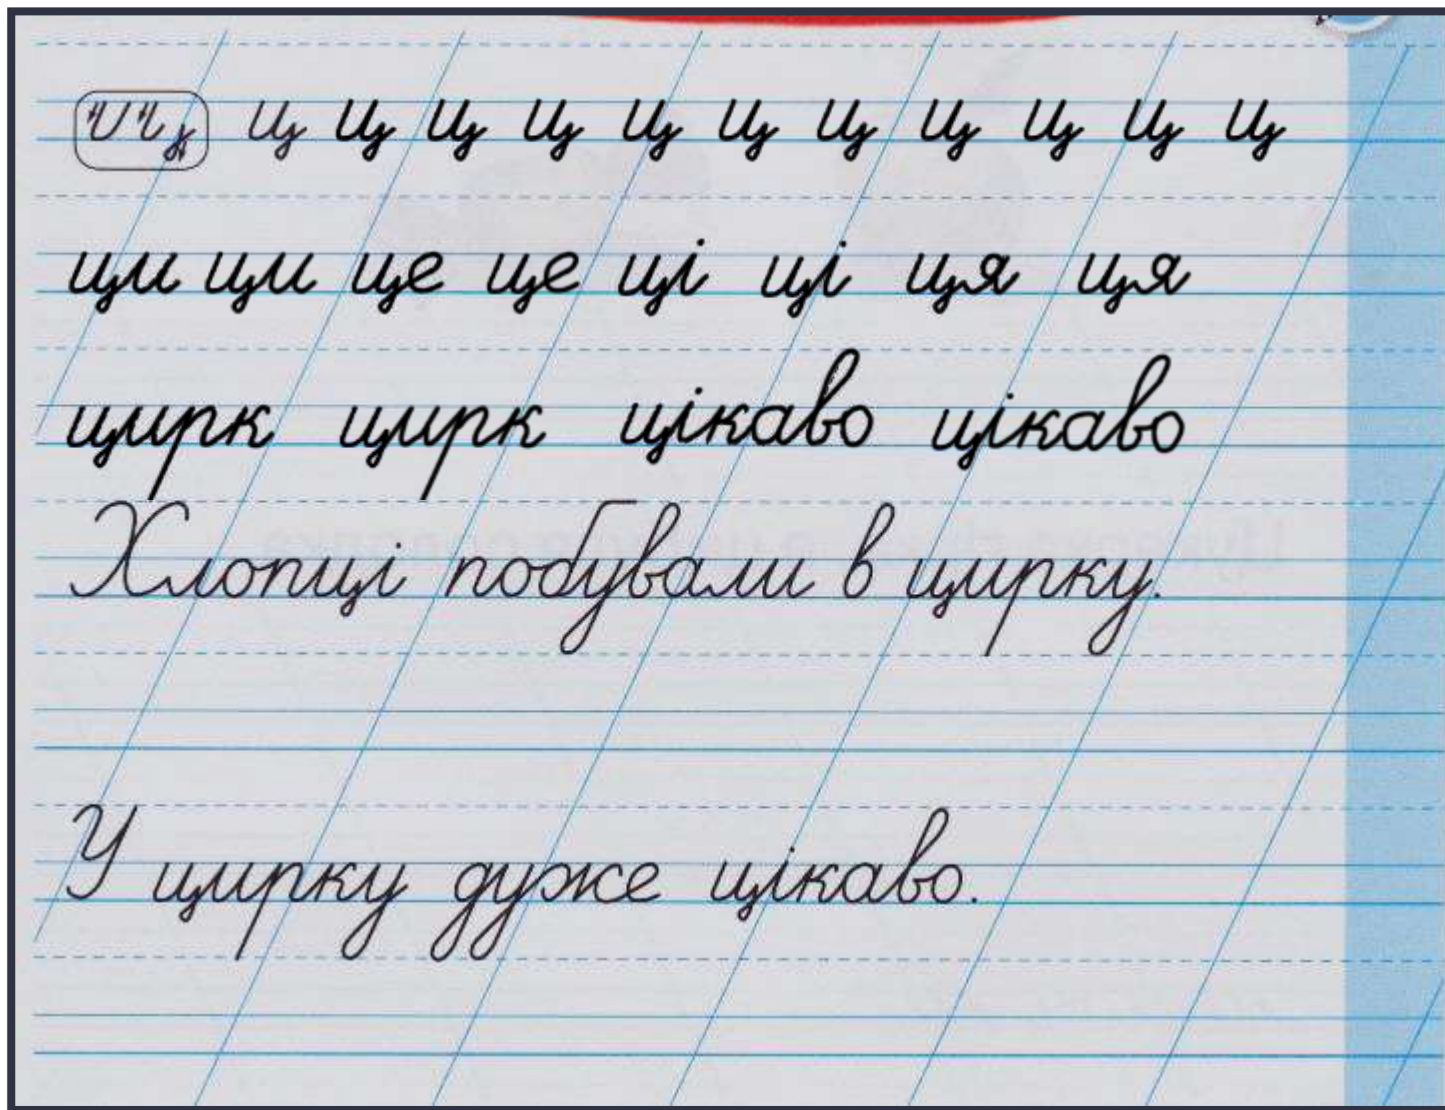 ц ц ц ц ц ц ц ц ц ц ц
ци ци це це ці ці ця ця
цирк цирк цікаво цікаво
Хлопці побували в цирку.
У цирку дуже цікаво.